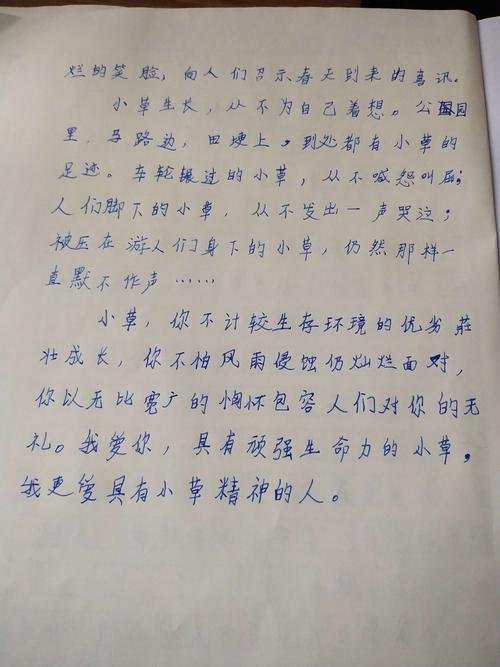 烂的笑脸，向人们召示春天到来的喜讯。
小草生长，从不为自己着想。公园
里，马路边，田埂上，到处都有小草的
足迹。车轮辗过的小草，从不喊怨叫屈；
人们脚下的小草，从不发出一声哭泣；
被压在游人们身下的小草，仍然那样一
直默不作声……
小草，你不计较生存环境的优劣茁
壮成长，你不怕风雨侵蚀仍灿烂面对，
你以无比宽广的胸怀包容人们对你的无
礼。我爱你，具有顽强生命力的小草，
我更爱具有小草精神的人。